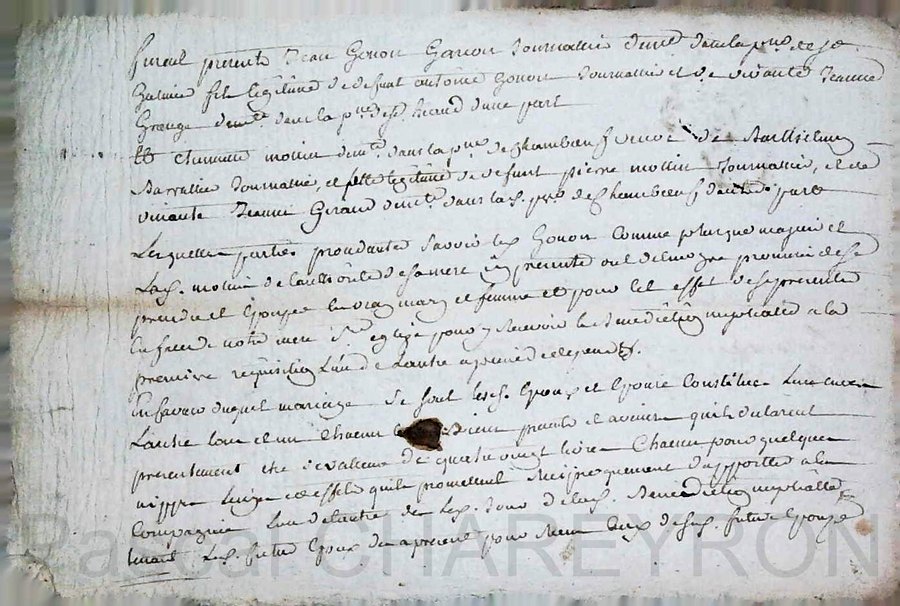 furent presents Jean Gonon Garcon Journallier demt dans la psse de St
Galmier fils legitime de defunt antoine Gonon Journallier et de vivante Jeanne
Grange demte dans la psse de St heand d'une part
Et Claudine molin demte dans la psse de Chambeuf veuve de Barthelemy
Barrallier Journallier, et fille legitime de defunt pierre mollin Journallier, et de
vivante Jeanne Giraud demte dans lad. psse de Chambeuf d'autre part
Lesquelles parties procedantes savoir led Gonon comme plus que majeur et
Lad. molin de l'authorité de sa mere presente ont de leur gré promis de se
prendre et Epouser en vray mary et femme et pour cet effet de se presenter
En face de notre mere Ste eglise pour y Recevoir la Benediction nuptialle a la
premiere requisition L'un de L'autre a peine de depends.
En faveur duquel mariage se sont lesd. Epoux et Epouse Constitués L'un envers
L'autre tous et un chacun biens presents et avenirs qu'ils declarent
presentement etre de valleur de quatre vingt livres Chacun pour quelques
nippes Linges et effets qu'ils promettent Reciproquement d'apporter a la
Compagnie L'un de L'autre Le Jour de lad. Benediction nuptialle
tenant Led. futur Epoux des a present pour Receu de lad. future Epouse
Pascal CHAREYRON